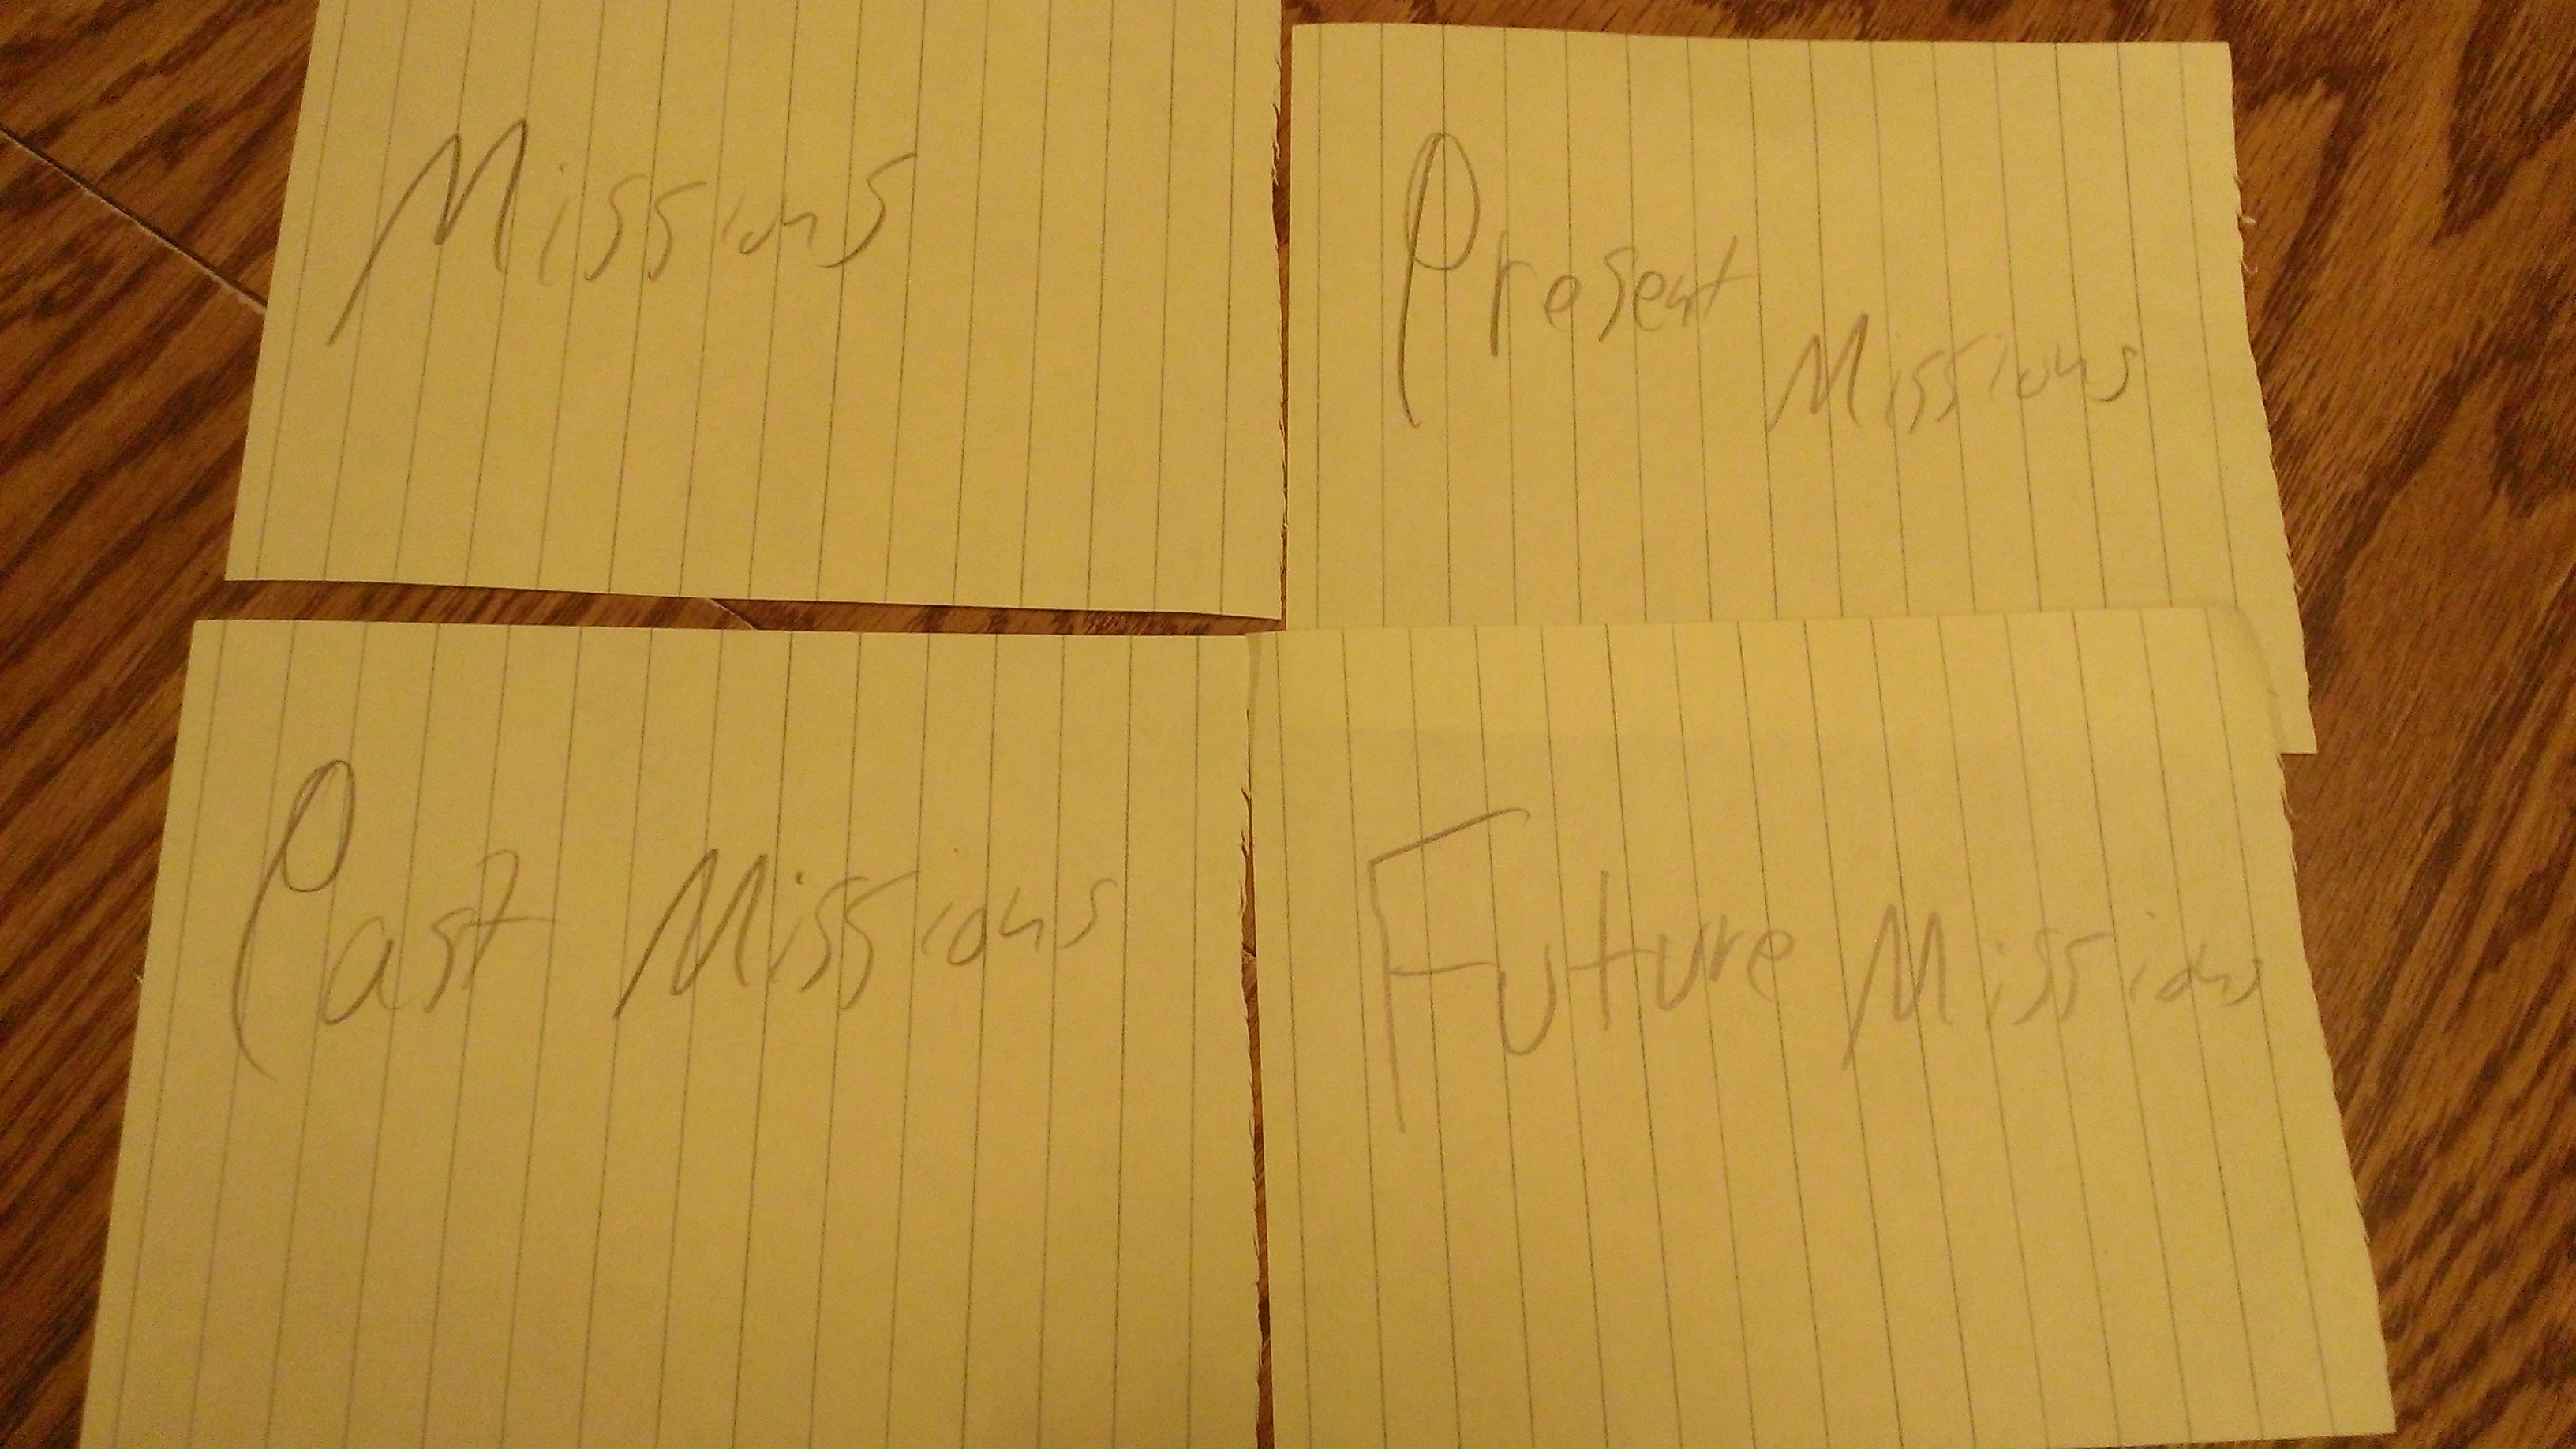 Missions
Present
Missions
Past Missions
Future Missions